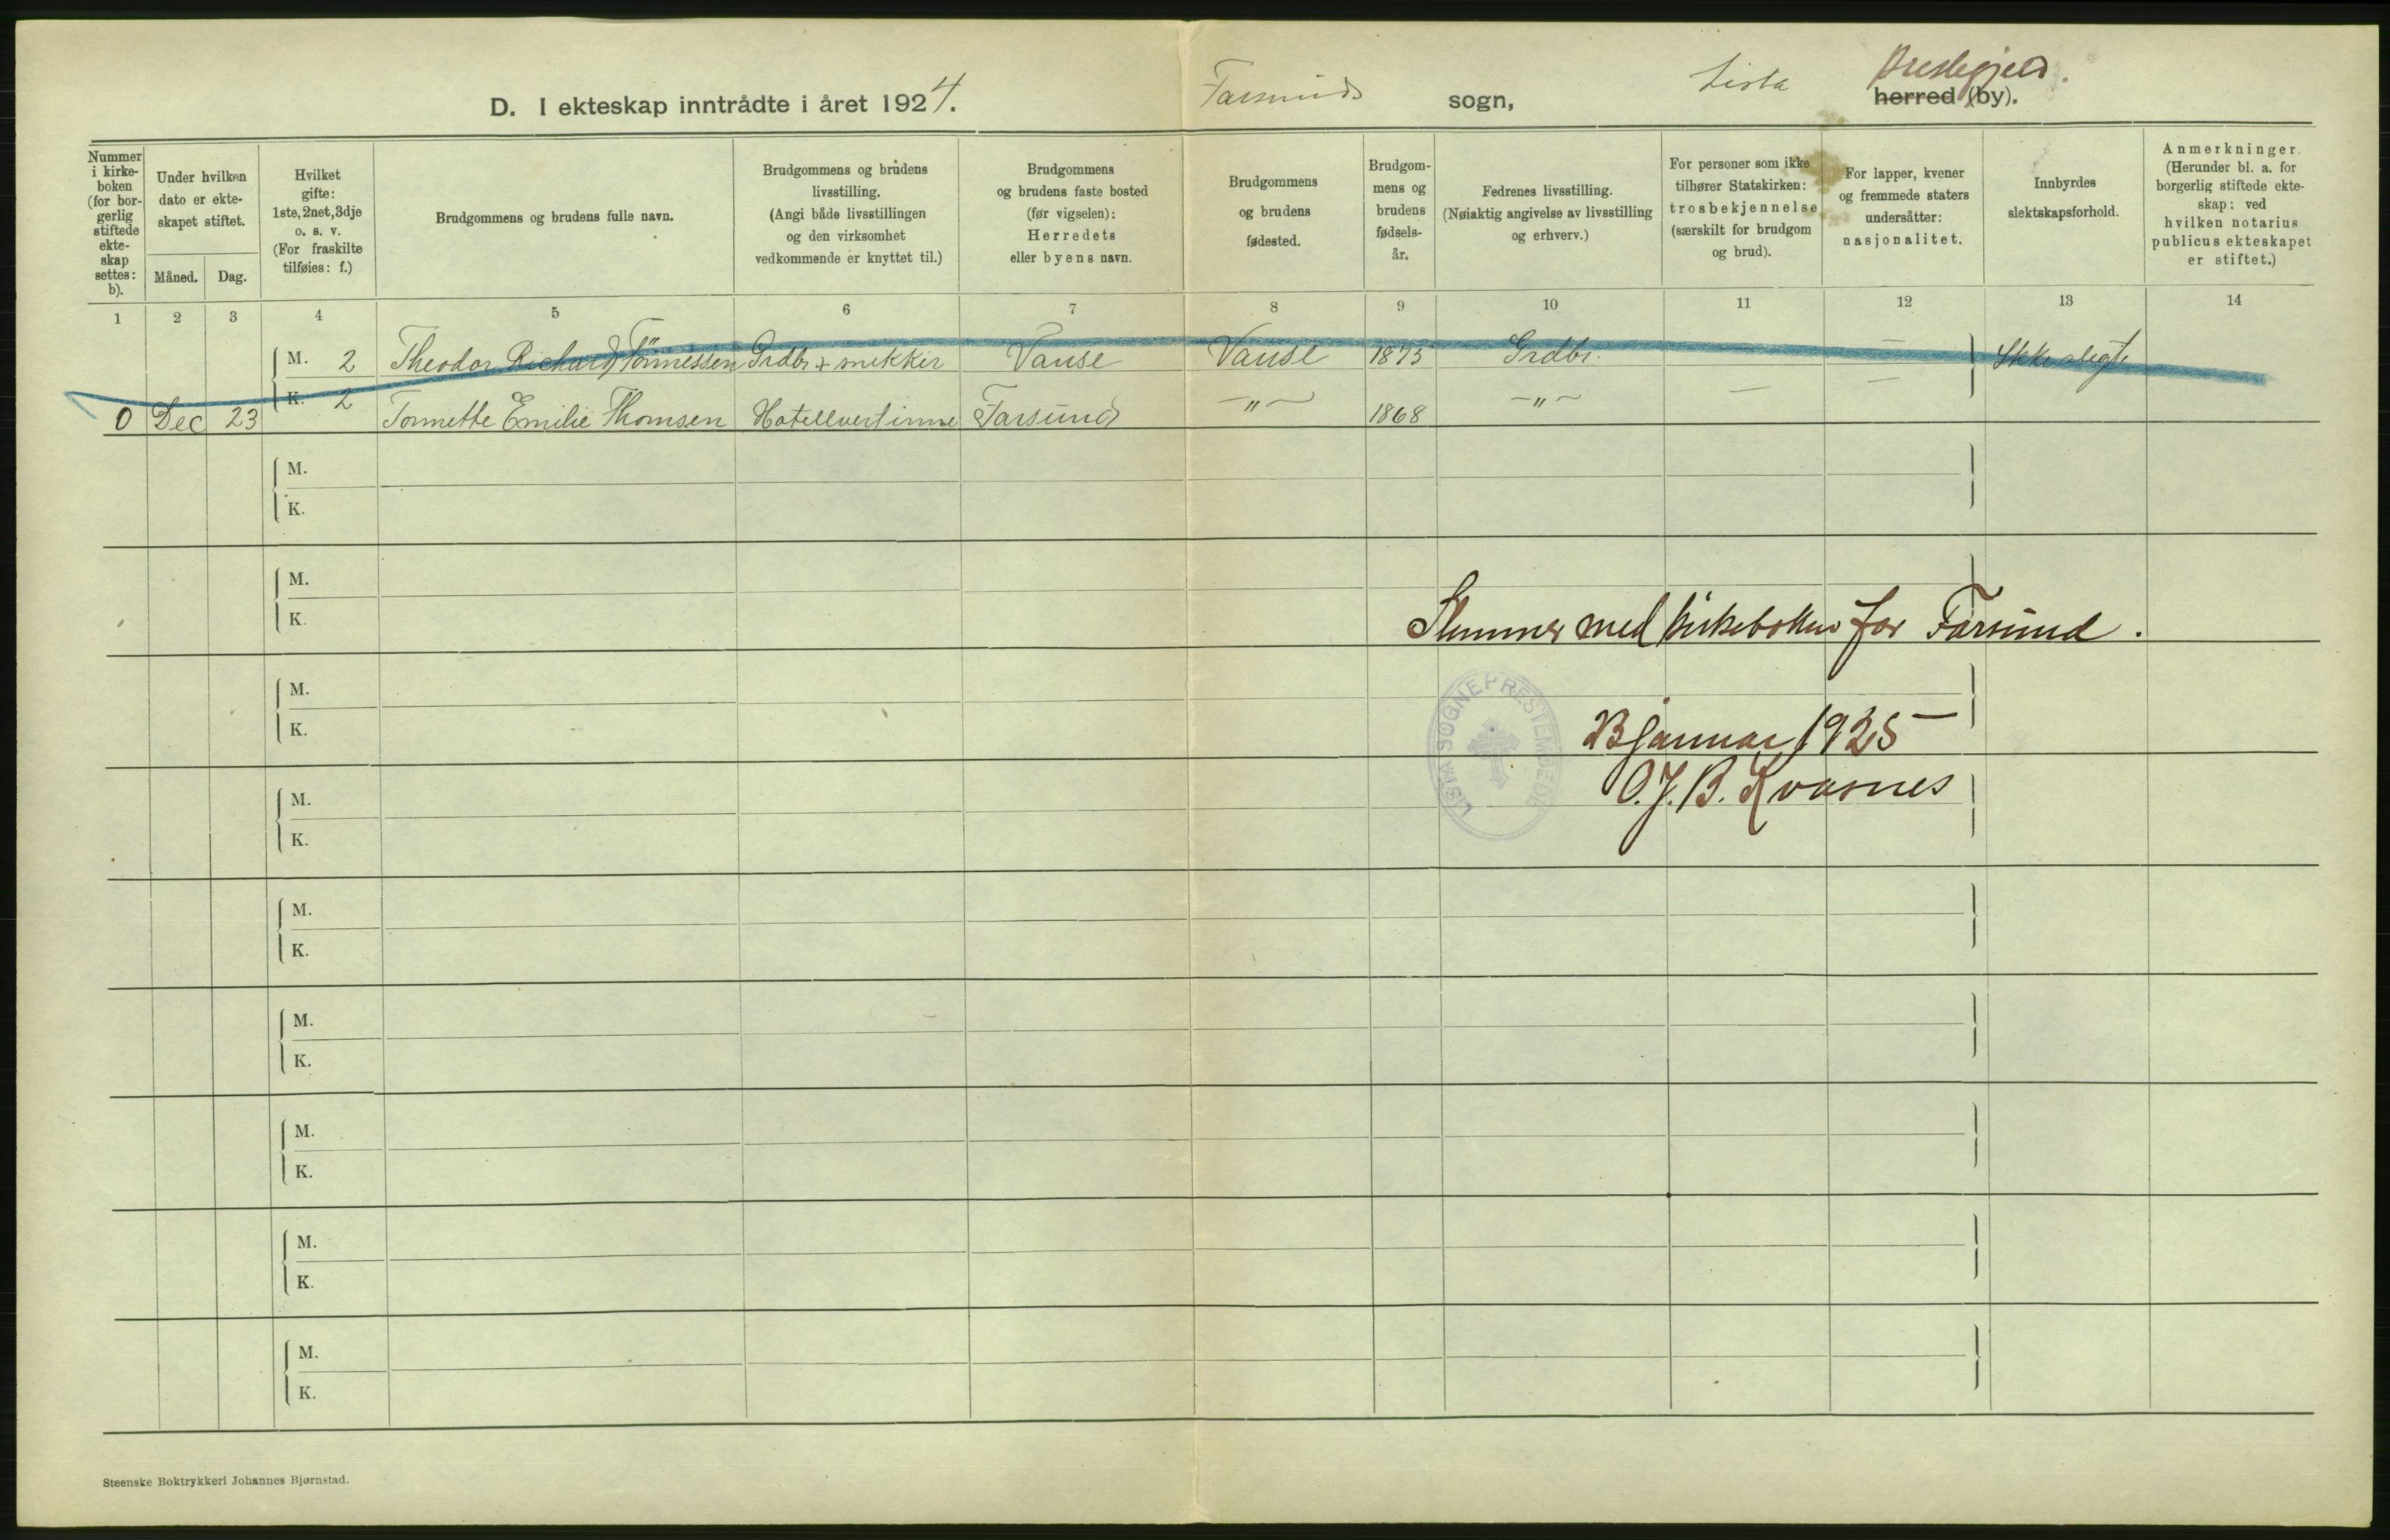 D. I ekteskap inntrådte i året 1924.
Farsunds sogn, Lista Prestegjeld. herred (by).
Nummer i kirke-boken (for bor-gerlig stiftede ekte-skap settes: b).
Under hvilken dato er ekte-skapet stiftet.
Måned. Dag.
Hvilket gifte: 1ste, 2net, 3dje o. s. v. (For fraskilte tilføies: f.)
Brudgommens og brudens fulle navn.
Brudgommens og brudens livsstilling. (Angi både livsstillingen og den virksomhet vedkommende er knyttet til.)
Brudgommens og brudens faste bosted (før vigselen): Herredets eller byens navn.
Brudgommens og brudens fødested.
Brudgom-mens og brudens fødsels-år.
Fedrenes livsstilling. (Nøiaktig angivelse av livsstilling og erhverv.)
For personer som ikke tilhører Statskirken: trosbekjennelse (særskilt for brudgom og brud).
For lapper, kvener og fremmede staters undersåtter: nasjonalitet.
Innbyrdes slektskapsforhold.
Anmerkninger. (Herunder bl. a. for borgerlig stiftede ekte-skap: ved hvilken notarius publicus ekteskapet er stiftet.)
1 2 3 4 5 6 7 8 9 10 11 12 13 14
M. 2 Theodor Richard Tönnessen Grdbr + snekker Vanse Vanse 1875 Grdbr. — — Ikke slegt
0 Dec 23 K. 2 Tonnette Emilie Thomsen Hotellvertinne Farsund —"— 1868 —"— — —
M.
K.
M.
K.
Stemmer med kirkeboken for Farsund.
M.
K.
LISTA SOGNEPRESTEMBEDE
13 januar 1925
O. J. B. Kvasnes
M.
K.
M.
K.
M.
K.
M.
K.
M.
K.
M.
K.
Steenske Boktrykkeri Johannes Bjørnstad.